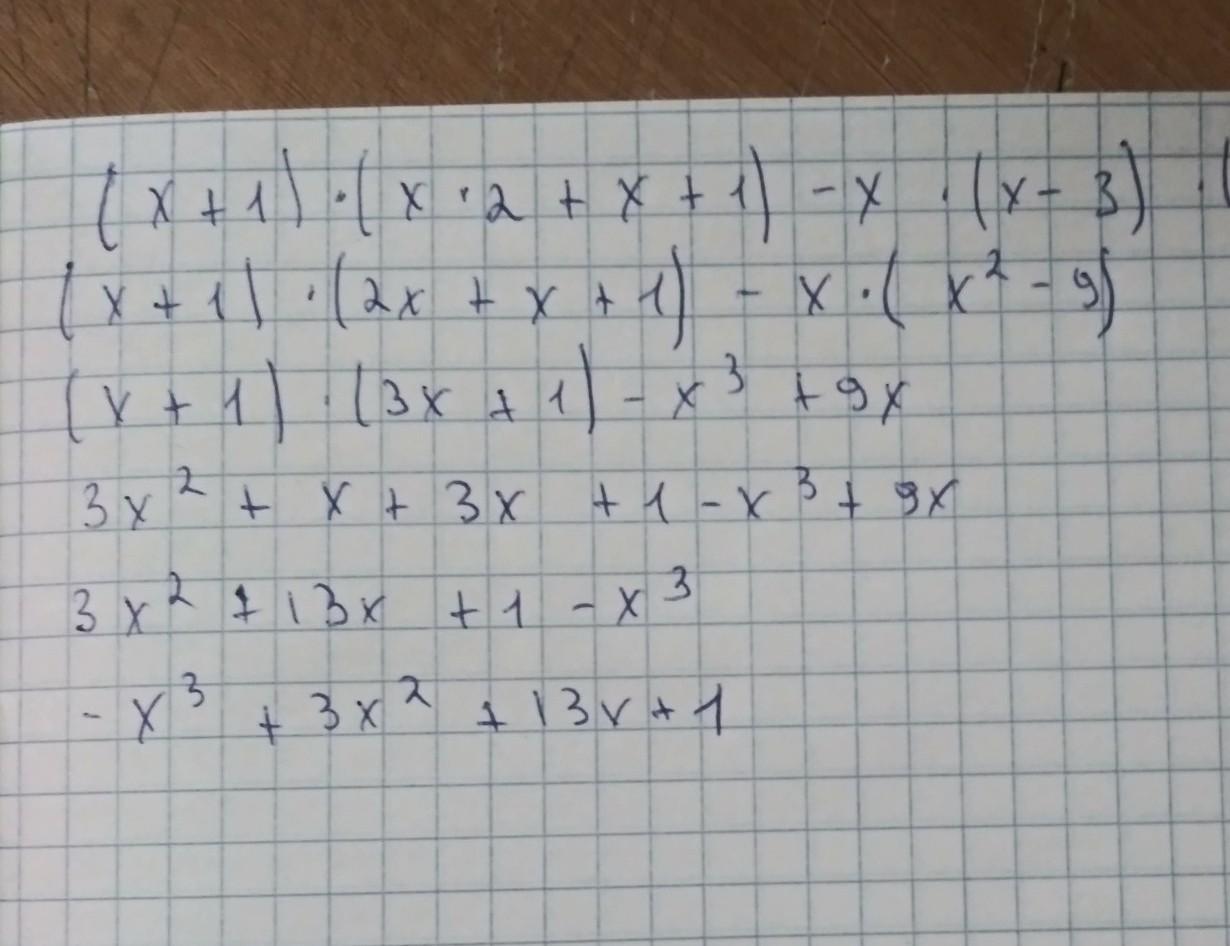 (x + 1) · (x · 2 + x + 1) - x · (x - 3) · (
(x + 1) · (2x + x + 1) - x · (x² - 9)
(x + 1) · (3x + 1) - x³ + 9x
3x² + x + 3x + 1 - x³ + 9x
3x² + 13x + 1 - x³
- x³ + 3x² + 13x + 1